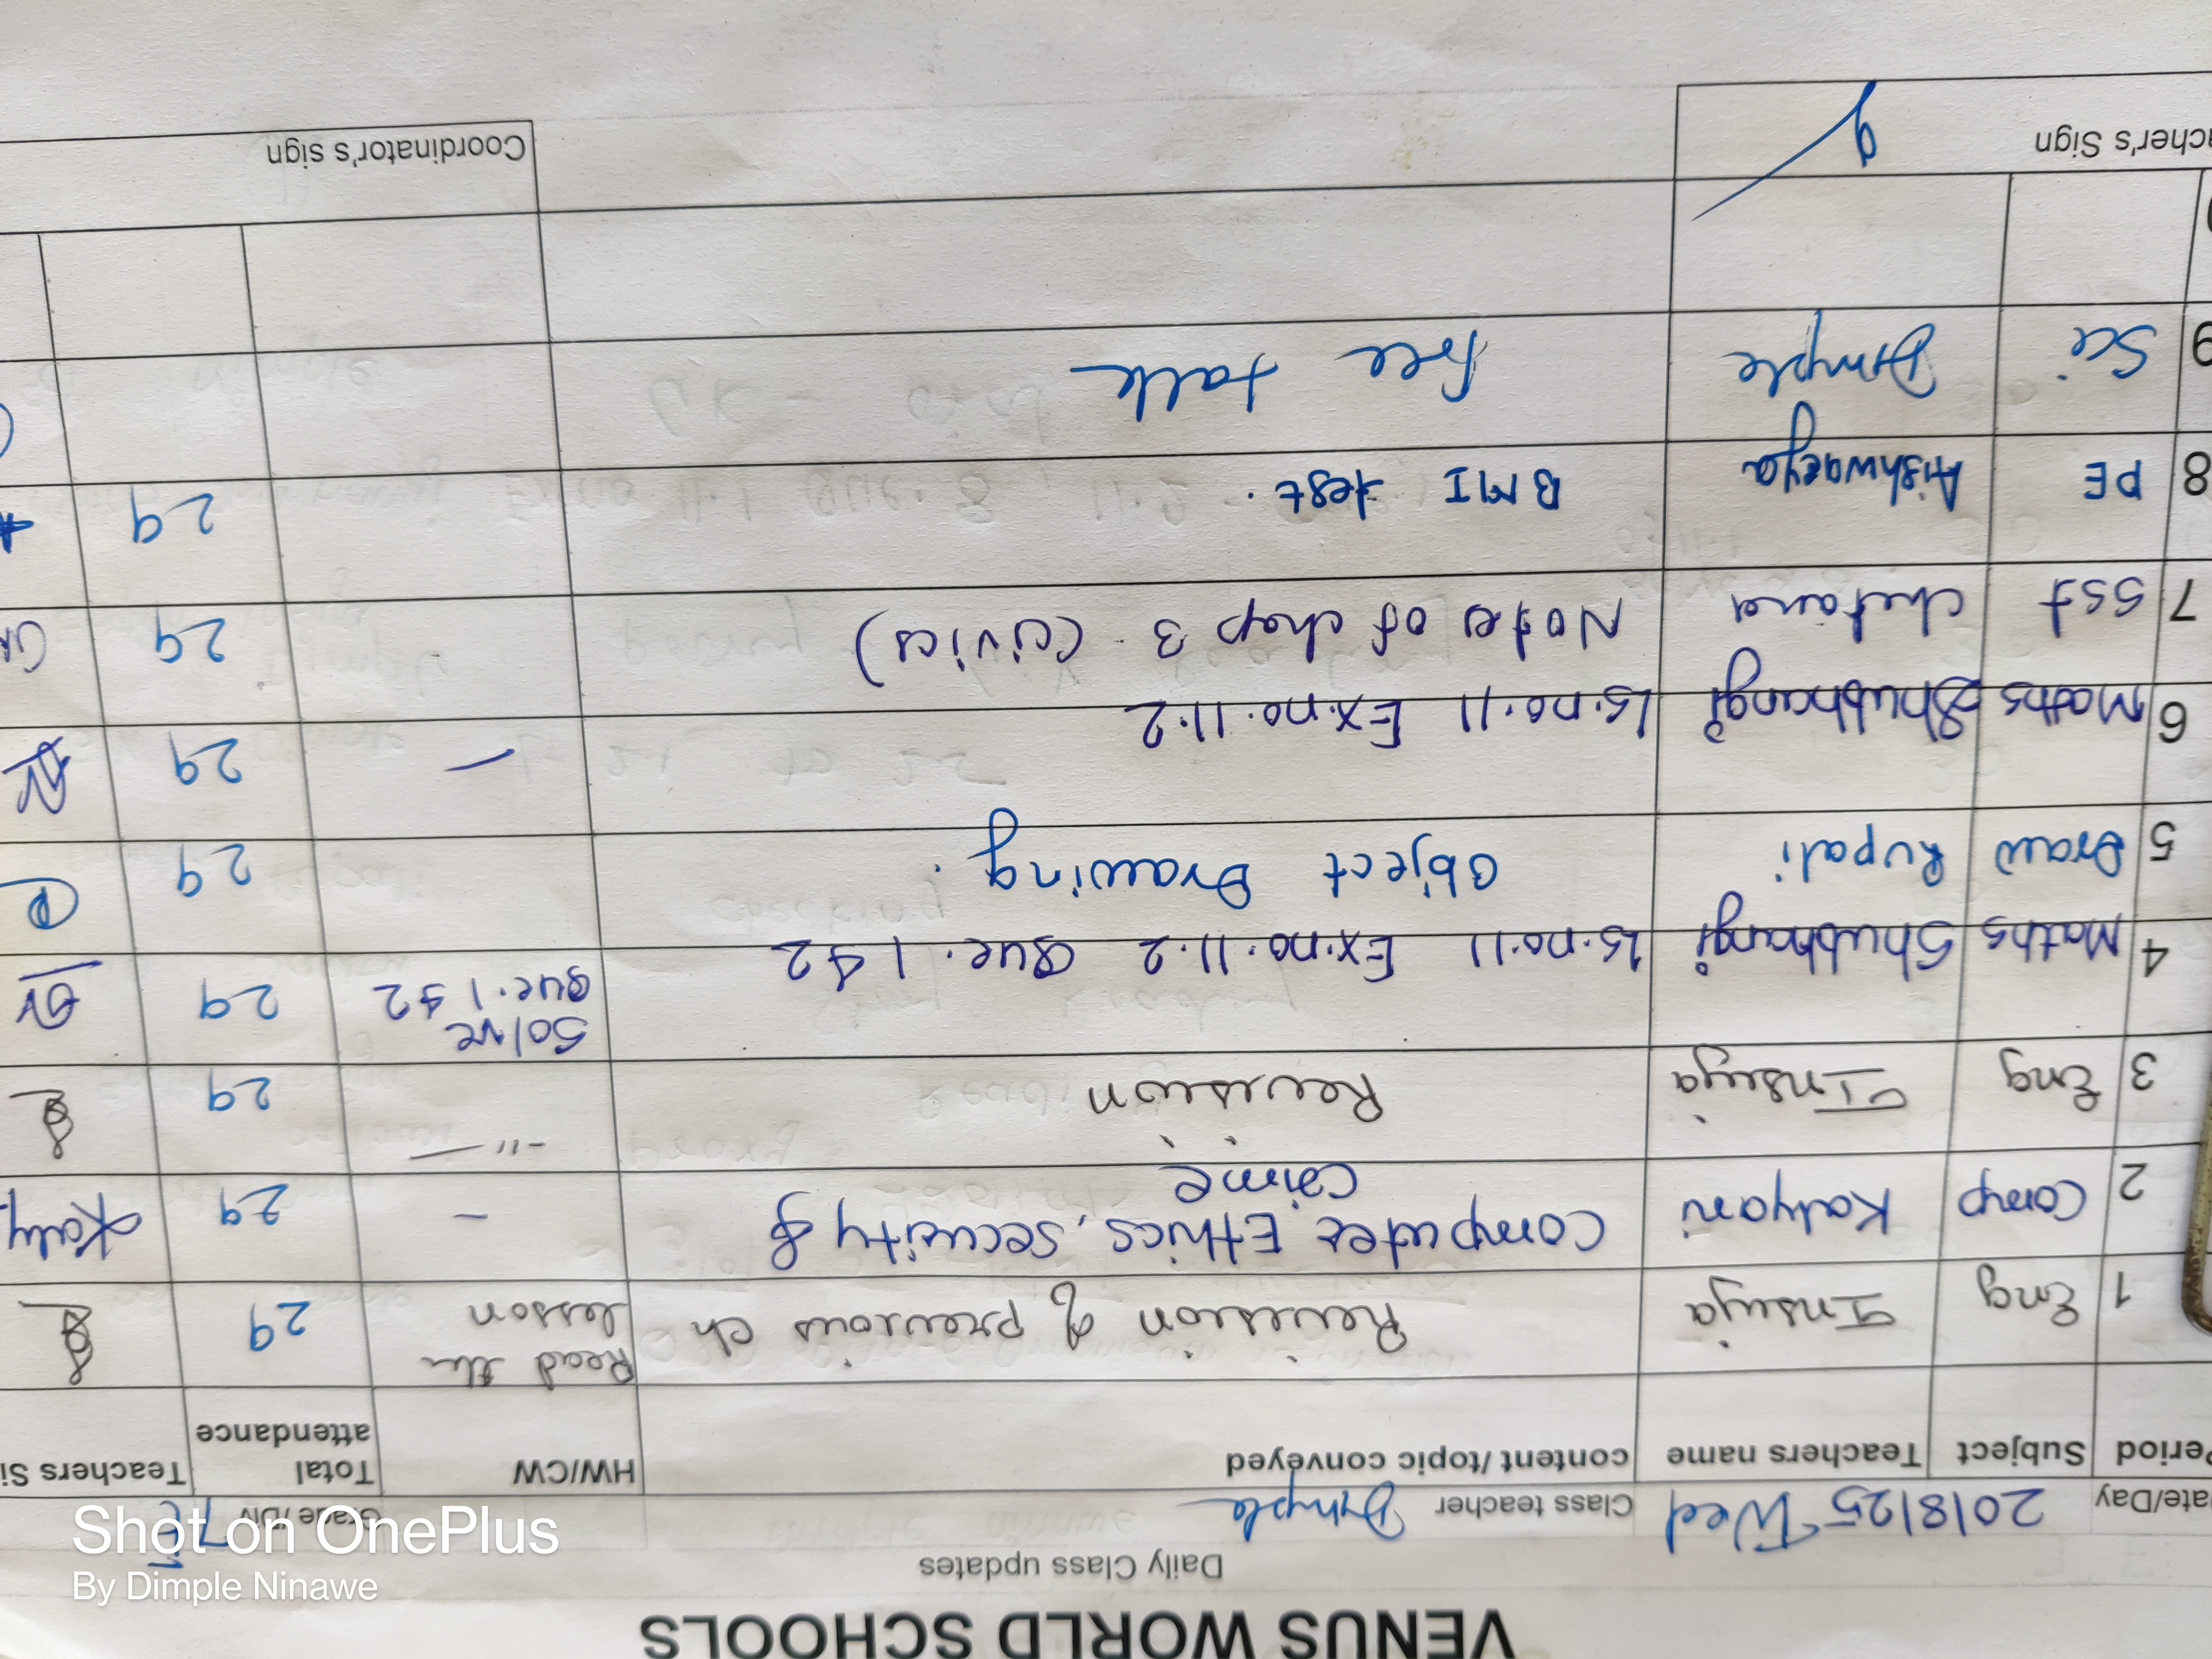 VENUS WORLD SCHOOLS
Daily Class updates
ate/Day 20/8/25 Wed Class teacher Dimple Grade /Div 7E
Period Subject Teachers name content/topic conveyed HW/CW Total attendance Teachers Si
1 Eng Insiya Revision of previous ch Read the lesson 29
2 Comp Kalyani Computer Ethics, security & Crime - 29 Kaly
3 Eng Insiya Revision -"- 29
4 Maths Shubhangi Ls.no.11 Ex.no.11.2 Que.1 & 2 Solve Que.1 & 2 29
5 Draw Rupali Object Drawing. 29
6 Maths Shubhangi Ls.no.11 Ex.no.11.2 - 29
7 SSt chetana Notes of chap 3 (civics) 29
8 PE Aishwarya BMI test. 29
9 Sci Dimple free talk
cher's Sign Coordinator's sign
Shot on OnePlus
By Dimple Ninawe